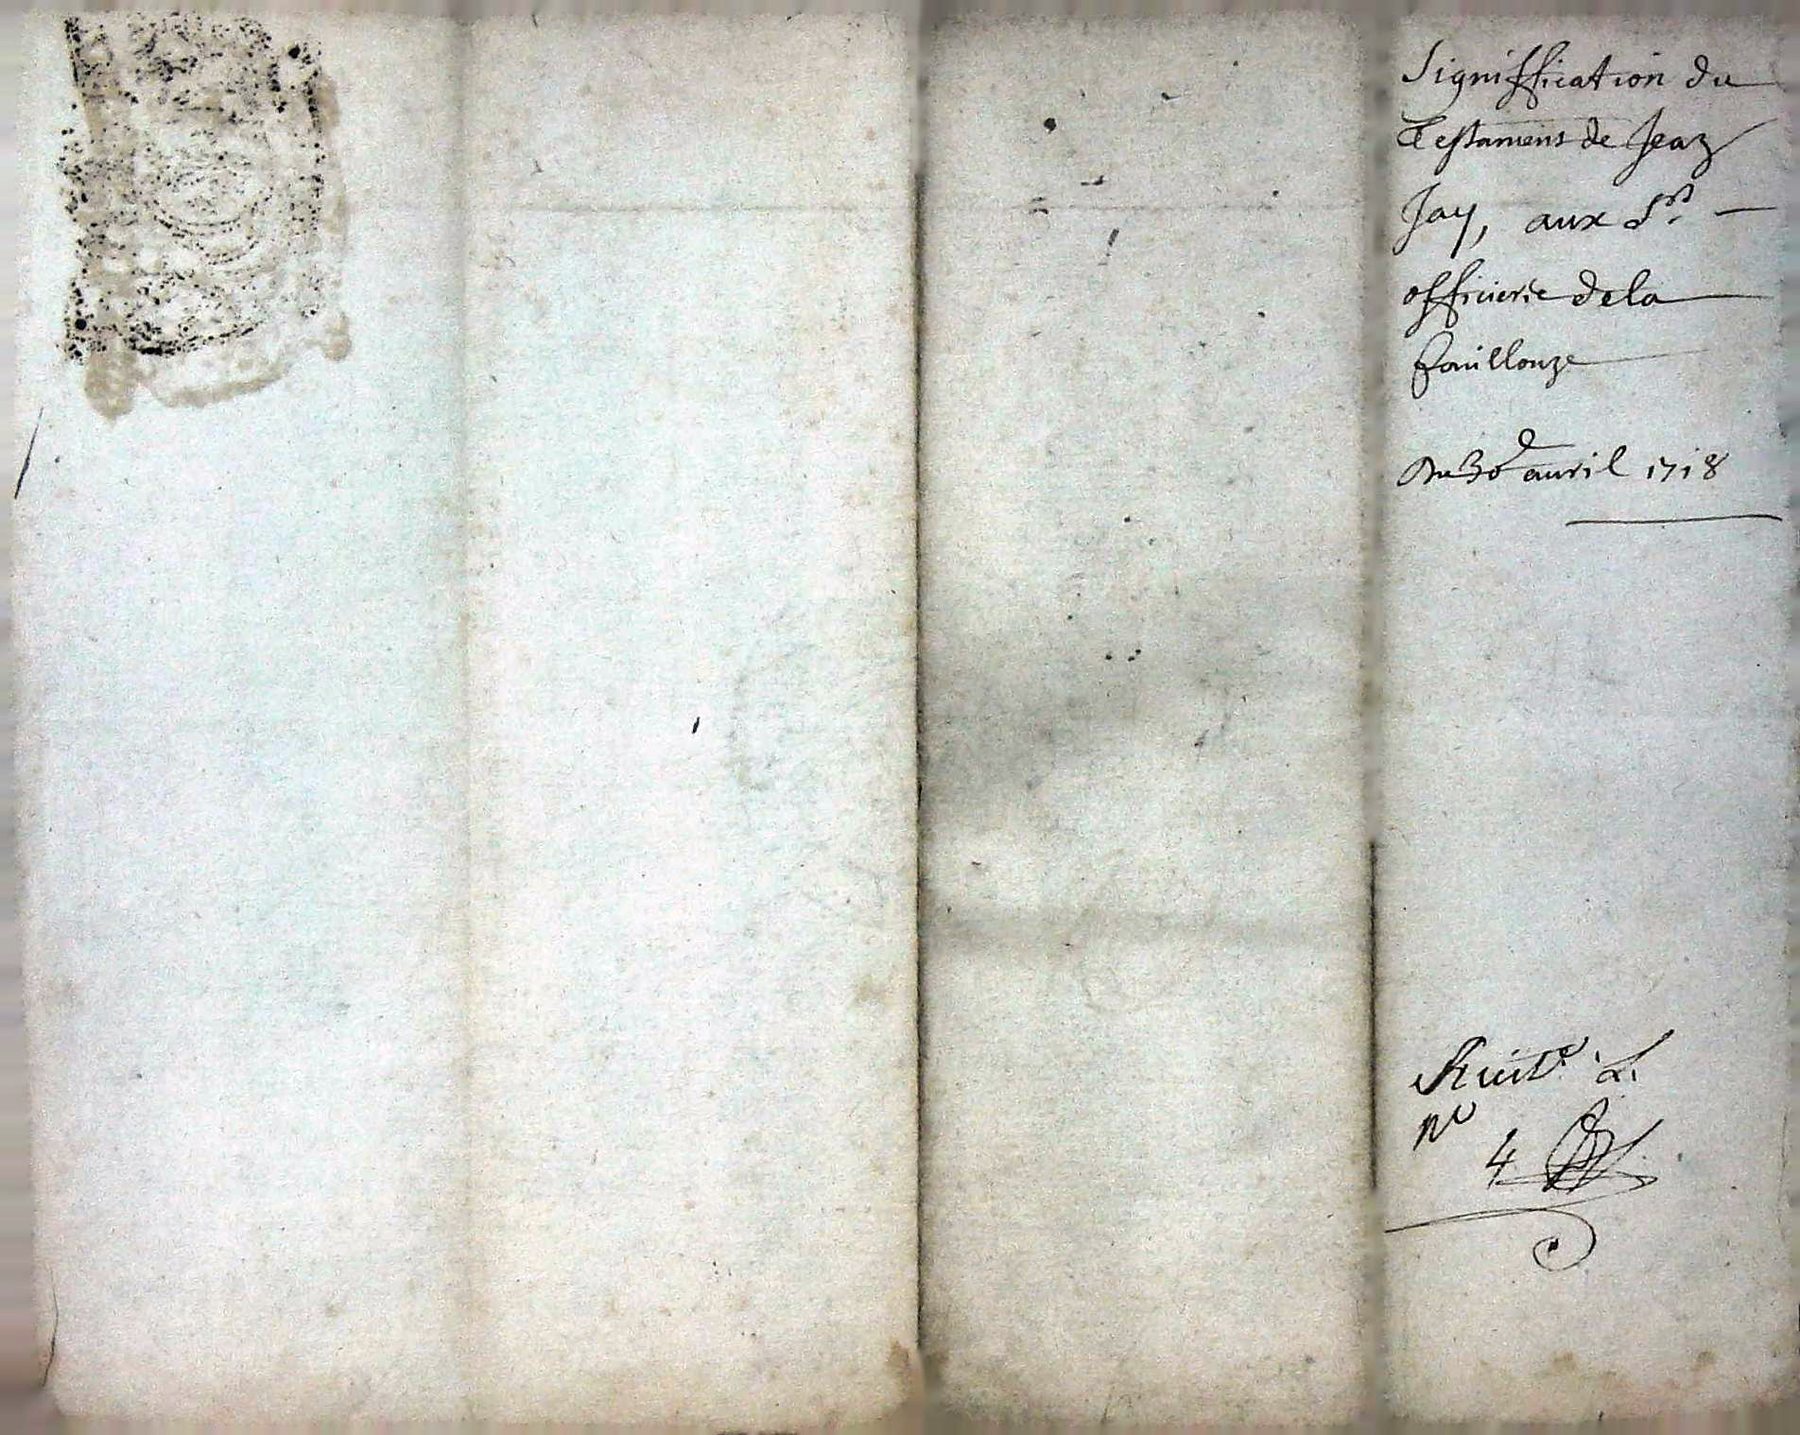 Signiffication du
Testament de Jean
Jay, aux Srs
officierie de la
fouillouze
Du 30e avril 1718
4